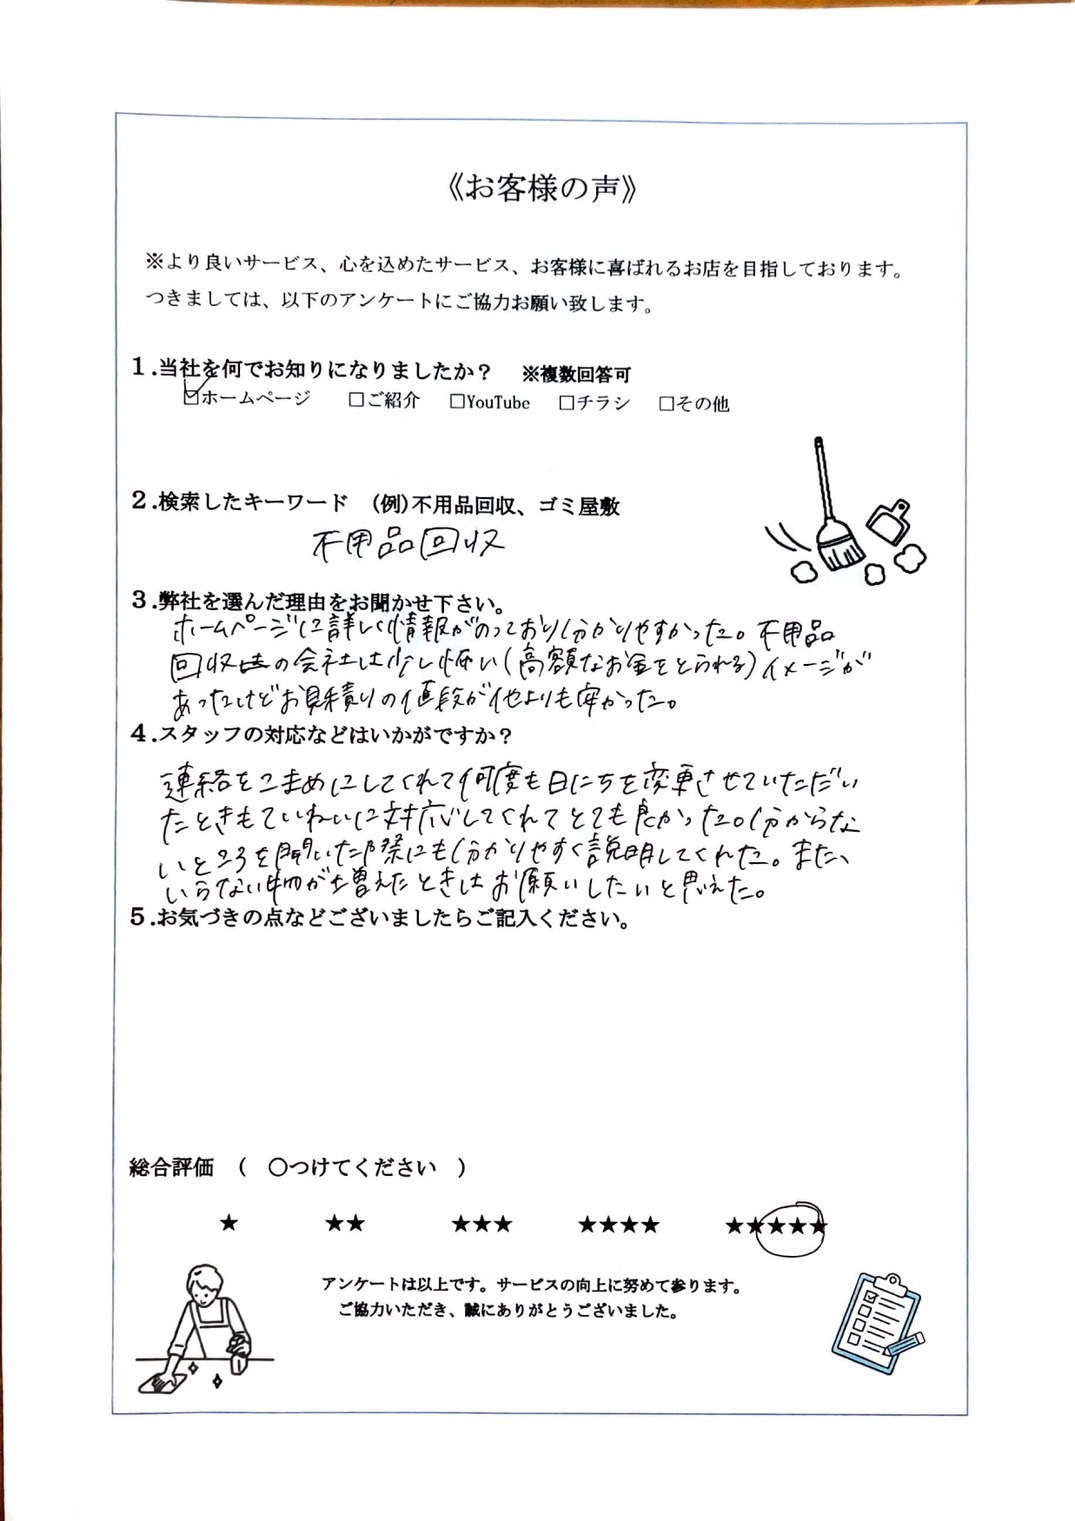 《お客様の声》
※より良いサービス、心を込めたサービス、お客様に喜ばれるお店を目指しております。
つきましては、以下のアンケートにご協力お願い致します。
1.当社を何でお知りになりましたか？ ※複数回答可
☑ホームページ □ご紹介 □YouTube □チラシ □その他
2.検索したキーワード (例)不用品回収、ゴミ屋敷
不用品回収
3.弊社を選んだ理由をお聞かせ下さい。
ホームページに詳しく情報がのっており分かりやすかった。不用品
回収の会社は少し怖い(高額なお金をとられる)イメージが
あったけどお見積りの値段が他よりも安かった。
4.スタッフの対応などはいかがですか？
連絡をこまめにしてくれて何度も日にちを変更させていただい
たときもていねいに対応してくれてとても良かった。分からな
いところを聞いた際にも分かりやすく説明してくれた。また、
いらない物が増えたときはお願いしたいと思えた。
5.お気づきの点などございましたらご記入ください。
総合評価 ( ○つけてください )
★ ★★ ★★★ ★★★★ ★★★★★
アンケートは以上です。サービスの向上に努めて参ります。
ご協力いただき、誠にありがとうございました。